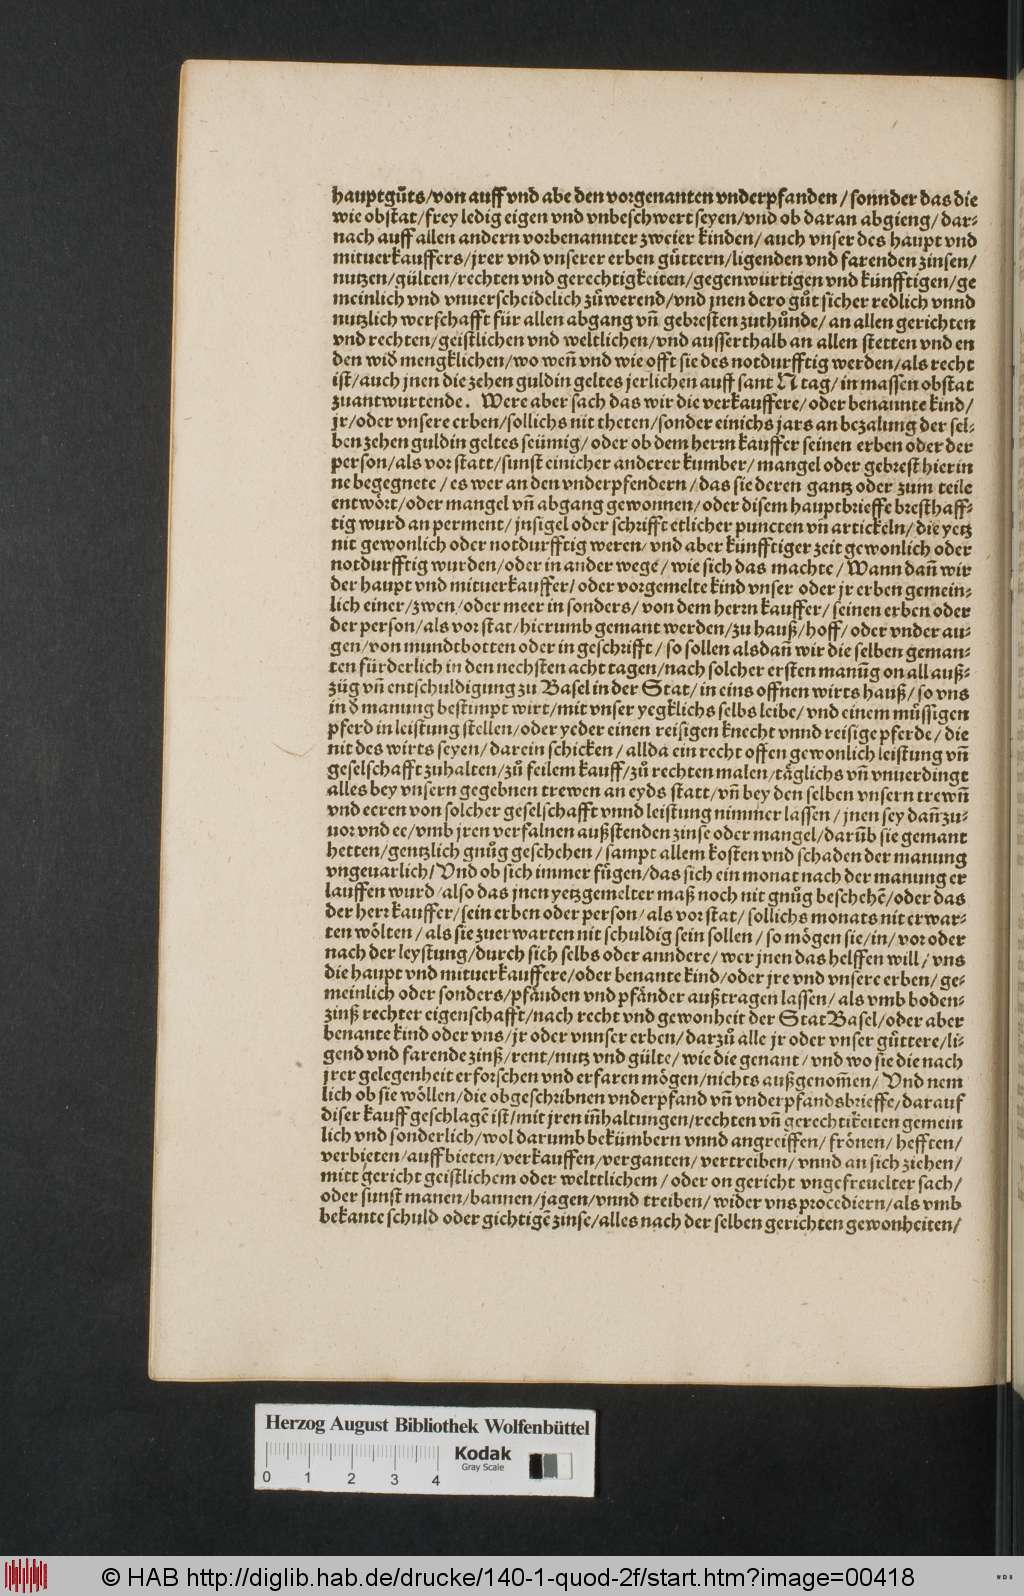 hauptguͦts/von auff vnd abe den vorgenanten vnderpfanden/sonnder das die
wie obstat/frey ledig eigen vnd vnbeschwert seyen/vnd ob daran abgieng/dar-
nach auff allen andern vorbenannter zweier kinden/auch vnser des haupt vnd
mituerkauffers/jrer vnd vnserer erben guͤttern/ligenden vnd farenden zinsen/
nutzen/gülten/rechten vnd gerechtigkeiten/gegenwürtigen vnd künfftigen/ge
meinlich vnd vnuerscheidelich zuͦwerend/vnd jnen dero guͦt sicher redlich vnnd
nutzlich werschafft für allen abgang vn̄ gebresten zuthuͦnde/an allen gerichten
vnd rechten/geistlichen vnd weltlichen/vnd ausserthalb an allen stetten vnd en
den wid̕ mengklichen/wo wen̄ vnd wie offt sie des notdurfftig werden/als recht
ist/auch jnen die zehen guldin geltes jerlichen auff sant N tag/in massen obstat
zuantwurtende. Were aber sach das wir die verkauffere/oder benannte kind/
jr/oder vnsere erben/sollichs nit theten/sonder einichs jars an bezalung der sel-
ben zehen guldin geltes seümig/oder ob dem herrn kauffer seinen erben oder der
person/als vor statt/sunst einicher anderer kumber/mangel oder gebrest hierin
ne begegnete/es wer an den vnderpfendern/das sie deren gantz oder zum teile
entwoͤrt/oder mangel vn̄ abgang gewonnen/oder disem hauptbrieffe bresthaff-
tig wurd an perment/jnsigel oder schrifft etlicher puncten vn̄ artickeln/die yetz
nit gewonlich oder notdurfftig weren/vnd aber künfftiger zeit gewonlich oder
notdurfftig wurden/oder in ander wege/wie sich das machte/Wann dan̄ wir
der haupt vnd mituerkauffer/oder vorgemelte kind vnser oder jr erben gemein-
lich einer/zwen/oder meer in sonders/von dem herrn kauffer/seinen erben oder
der person/als vor stat/hierumb gemant werden/zu hauß/hoff/oder vnder au-
gen/von mundtbotten oder in geschrifft/so sollen alsdan̄ wir die selben geman-
ten fürderlich in den nechsten acht tagen/nach solcher ersten manūg on all auß-
züg vn̄ entschuldigung zu Basel in der Stat/in eins offnen wirts hauß/so vns
in d̕ manung bestimpt wirt/mit vnser yegklichs selbs leibe/vnd einem muͤssigen
pferd in leistung stellen/oder yeder einen reisigen knecht vnnd reisige pferde/die
nit des wirts seyen/darein schicken/allda ein recht offen gewonlich leistung vn̄
geselschafft zuhalten/zuͦ feilem kauff/zuͦ rechten malen/taͤglichs vn̄ vnuerdingt
alles bey vnsern gegebnen trewen an eyds statt/vn̄ bey den selben vnsern trewn̄
vnd eeren von solcher geselschafft vnnd leistung nimmer lassen/jnen sey dan̄ zu-
uor vnd ee/vmb jren verfalnen außstenden zinse oder mangel/darūb sie gemant
hetten/gentzlich gnuͦg geschehen/sampt allem kosten vnd schaden der manung
vngeuarlich/Vnd ob sich immer fuͤgen/das sich ein monat nach der manung er
lauffen wurd/also das jnen yetzgemelter maß noch nit gnuͦg beschehē/oder das
der herr kauffer/sein erben oder person/als vor stat/sollichs monats nit erwar-
ten woͤlten/als sie zuerwarten nit schuldig sein sollen/so moͤgen sie/in/vor oder
nach der leystung/durch sich selbs oder anndere/wer jnen das helffen will/vns
die haupt vnd mituerkauffere/oder benante kind/oder jre vnd vnsere erben/ge-
meinlich oder sonders/pfaͤnden vnd pfaͤnder außtragen lassen/als vmb boden-
zinß rechter eigenschafft/nach recht vnd gewonheit der Stat Basel/oder aber
benante kind oder vns/jr oder vnnser erben/darzuͦ alle jr oder vnser guͤttere/li-
gend vnd farende zinß/rent/nutz vnd gülte/wie die genant/vnd wo sie die nach
jrer gelegenheit erforschen vnd erfaren moͤgen/nichts außgenom̄en/Vnd nem
lich ob sie woͤllen/die obgeschribnen vnderpfand vn̄ vnderpfandsbrieffe/darauf
diser kauff geschlagē ist/mit jren in̄haltungen/rechten vn̄ gerechtikeiten gemein
lich vnd sonderlich/wol darumb bekümbern vnnd angreiffen/froͤnen/hefften/
verbieten/auffbieten/verkauffen/verganten/vertreiben/vnnd an sich ziehen/
mitt gericht geistlichem oder welttlichem/oder on gericht vngefreuelter sach/
oder sunst manen/bannen/jagen/vnnd treiben/wider vns procediern/als vmb
bekante schuld oder gichtigē zinse/alles nach der selben gerichten gewonheiten/
Herzog August Bibliothek Wolfenbüttel
Kodak
Gray Scale
0 1 2 3 4
© HAB http://diglib.hab.de/drucke/140-1-quod-2f/start.htm?image=00418